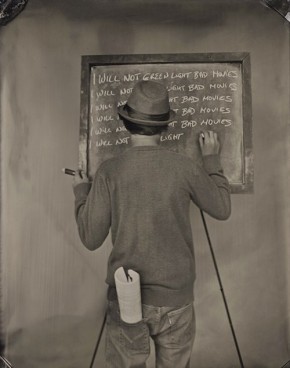 I WILL NOT GREEN LIGHT BAD MOVIES
I WILL NOT LIGHT BAD MOVIES
I WILL NOT BAD MOVIES
I WILL NOT BAD MOVIES
I WILL NOT BAD MOVIES
I WILL NOT LIGHT